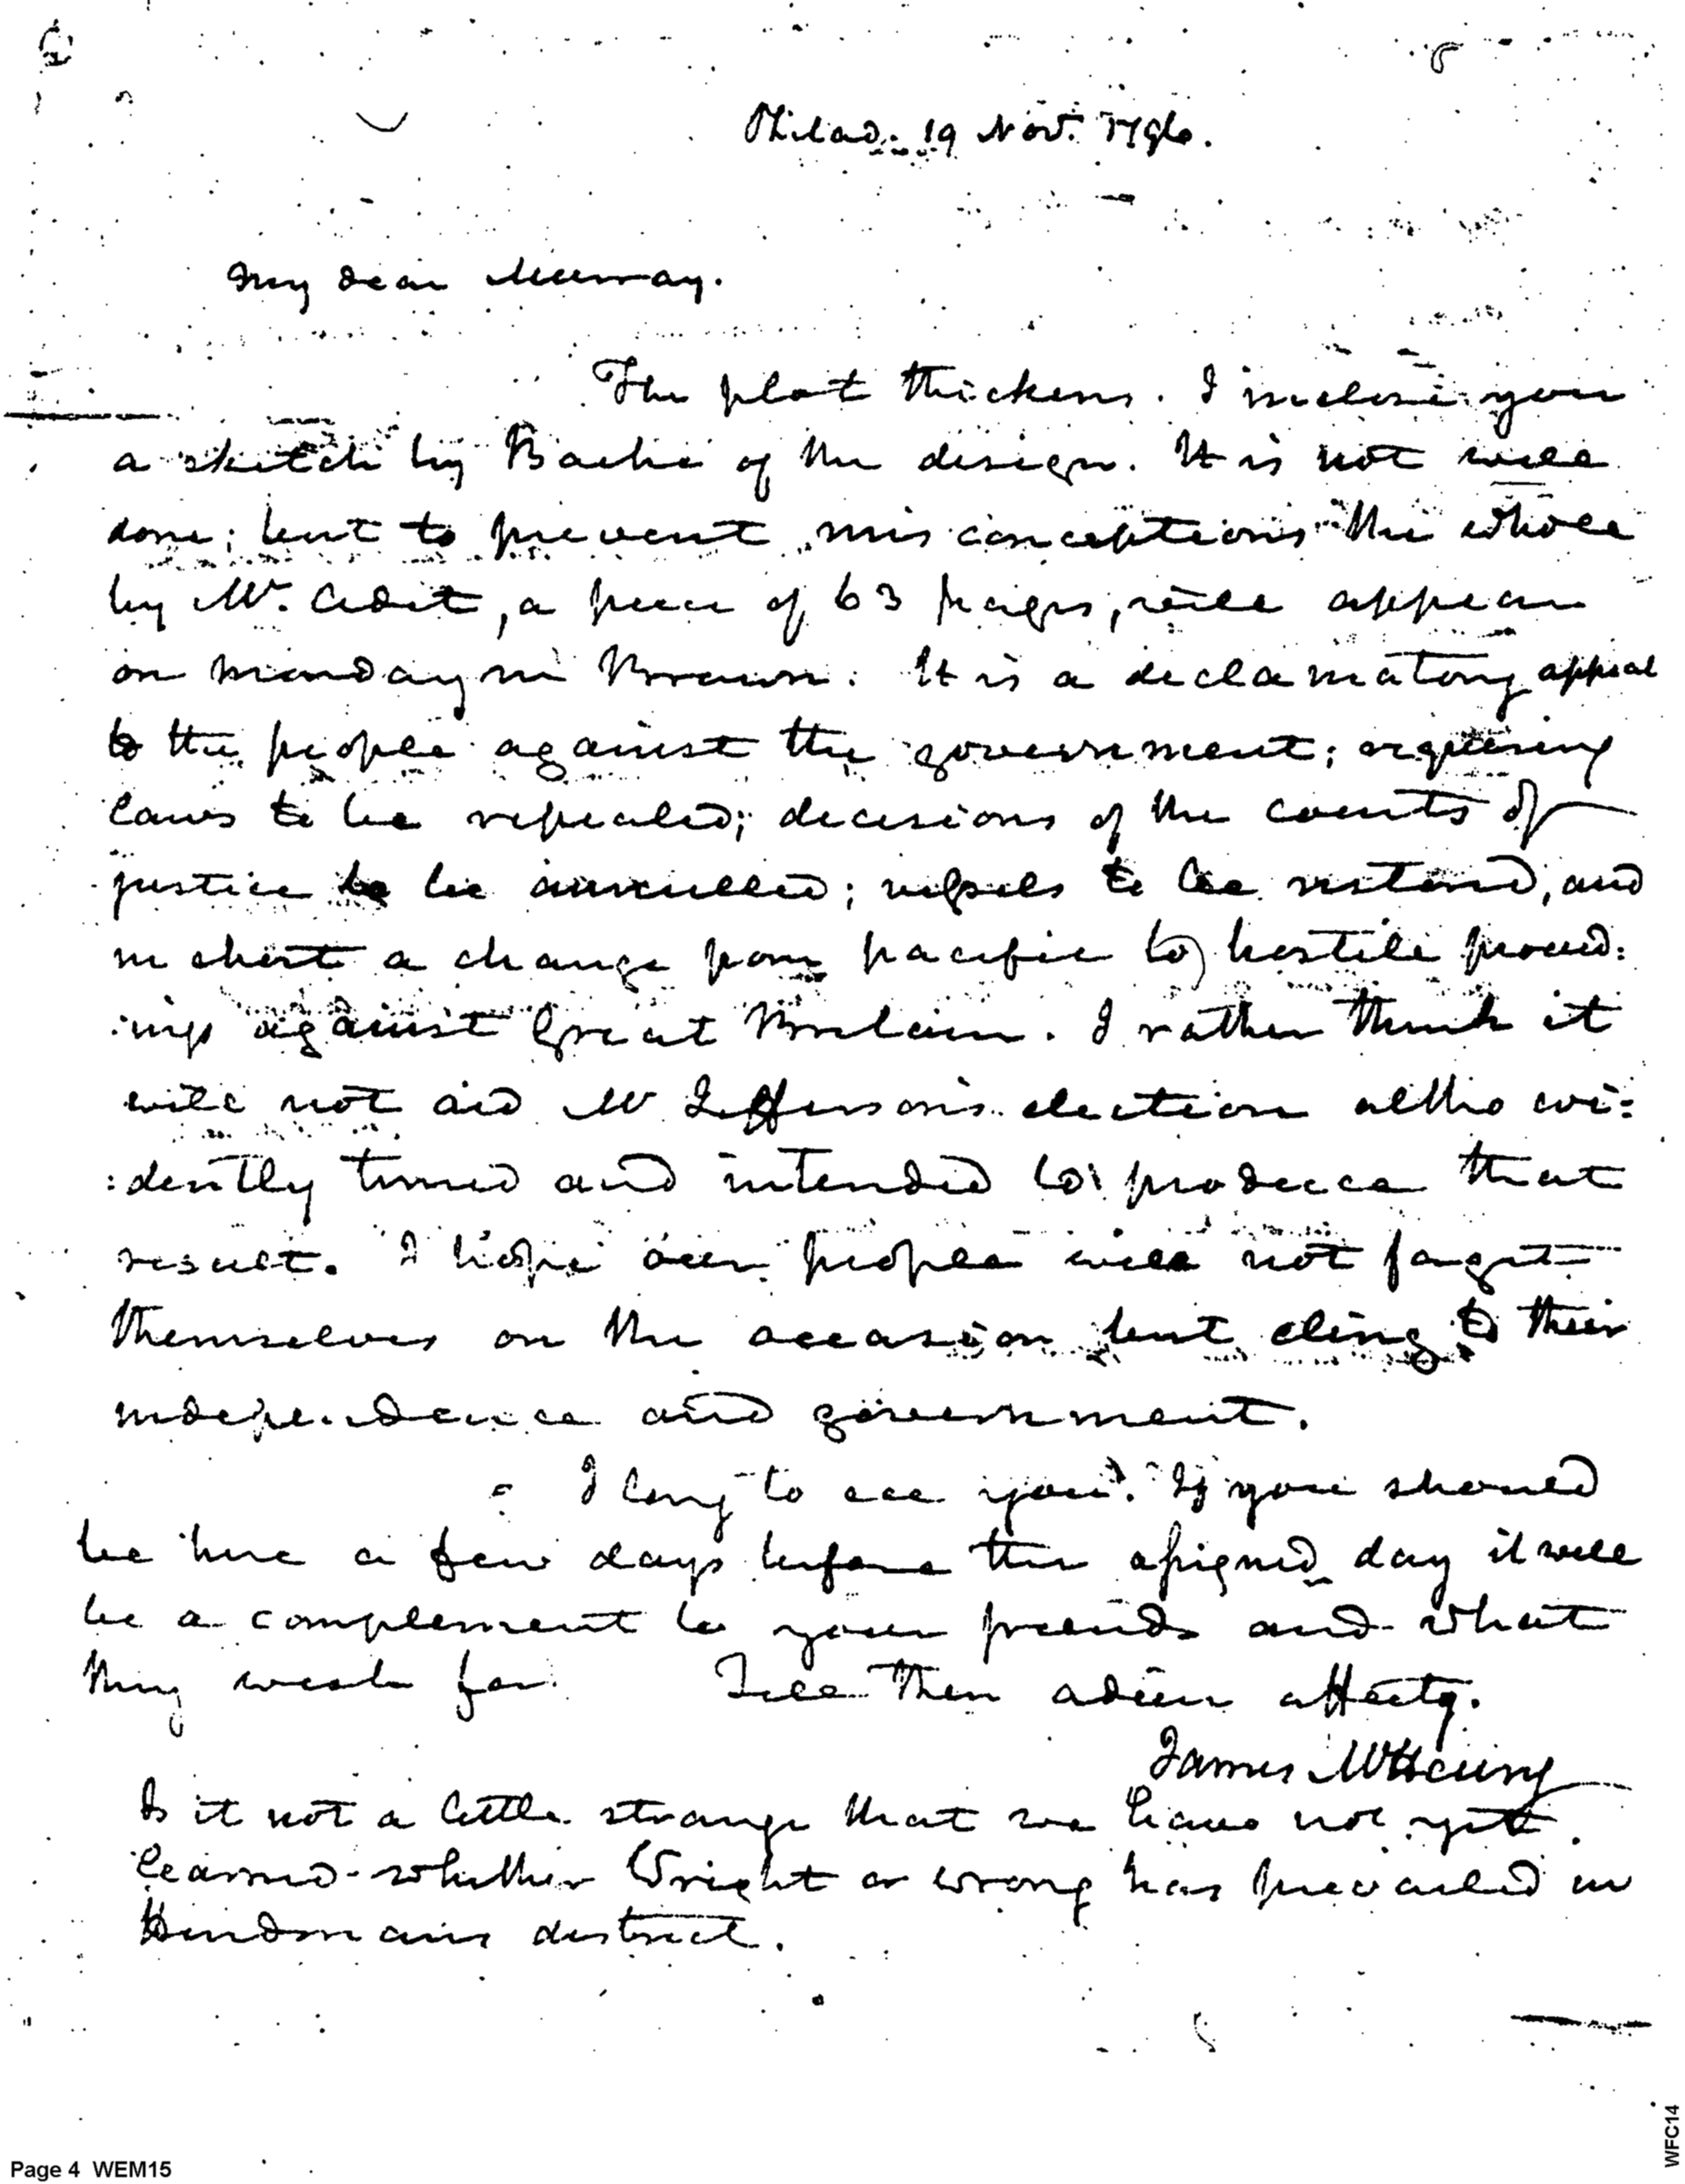 Philad. 19 Nov. 1796.
My dear Murray.
The plot thickens. I inclose you
a sketch by Bache of the design. It is not well
done; but to prevent misconceptions the whole
by Mr. Adet, a piece of 63 pages, will appear
on monday in Brown. It is a declamatory appeal
to the people against the government; requiring
laws to be repealed; decisions of the courts of
justice to be annulled; vessels to be restored, and
in short a change from pacific to hostile proceed:
:ings against Great Britain. I rather think it
will not aid Mr Jefferson's election altho evi:
:dently timed and intended to produce that
result. I hope our people will not forget
themselves on the occasion but cling to their
independence and government.
I long to see you. If you should
be here a few days before the assigned day it will
be a complement to your friends and what
they wish for. Till then adieu affecty.
James McHenry
Is it not a little strange that we have not yet
learned whether Wright or wrong has prevailed in
Hindmans district.
Page 4 WEM15
WFC14